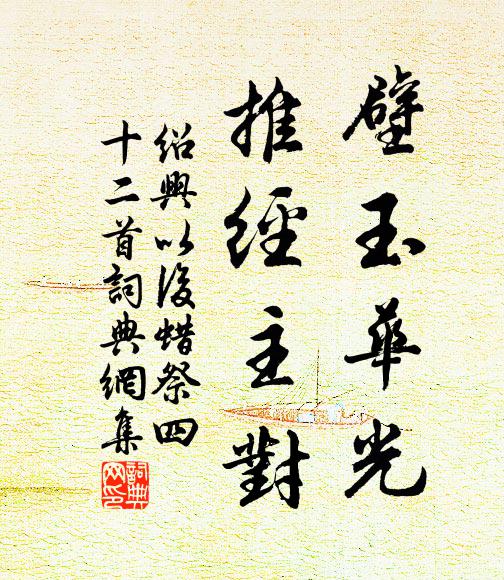 壁玉華光
推經主對
紹興以後蜡祭四
十二首詞典網集
詞典
网印